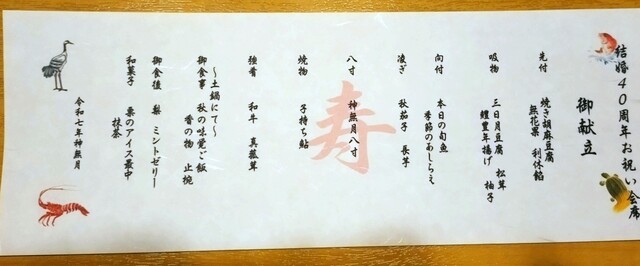 結婚40周年お祝い会席
御献立
先付 焼き胡麻豆腐
無花果 利休餡
吸物 三日月豆腐 松茸
鱧豊年揚げ 柚子
向付 本日の旬魚
季節のあしらえ
凌ぎ 秋茄子 長芋
八寸 神無月八寸
寿
焼物 子持ち鮎
強肴 和牛 真菰茸
～土鍋にて～
御食事 秋の味覚ご飯
香の物 止椀
御食後 梨 ミントゼリー
和菓子 栗のアイス最中
抹茶
令和七年神無月